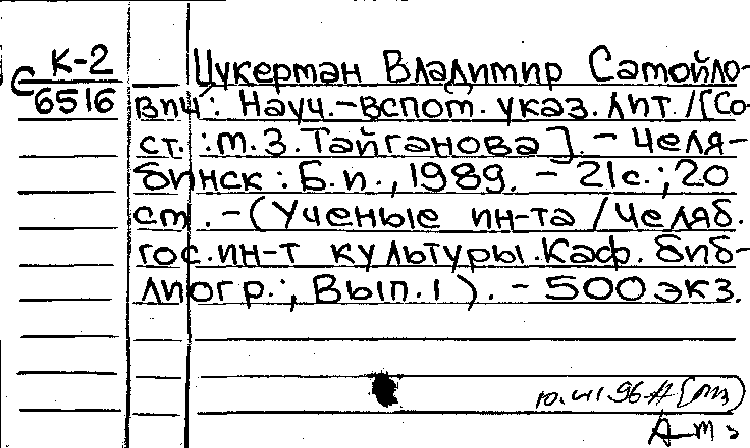 К-2
С 6516
Цукерман Владимир Самойло-
вич: Науч.-вспом. указ. лит. /[Со
ст.: М.З. Тайганова]. - Челя-
бинск: Б.и., 1989. - 21с.; 20
см. - (Ученые ин-та / Челяб.
гос. ин-т культуры. Каф. биб-
лиогр.; Вып. 1). - 500 экз.